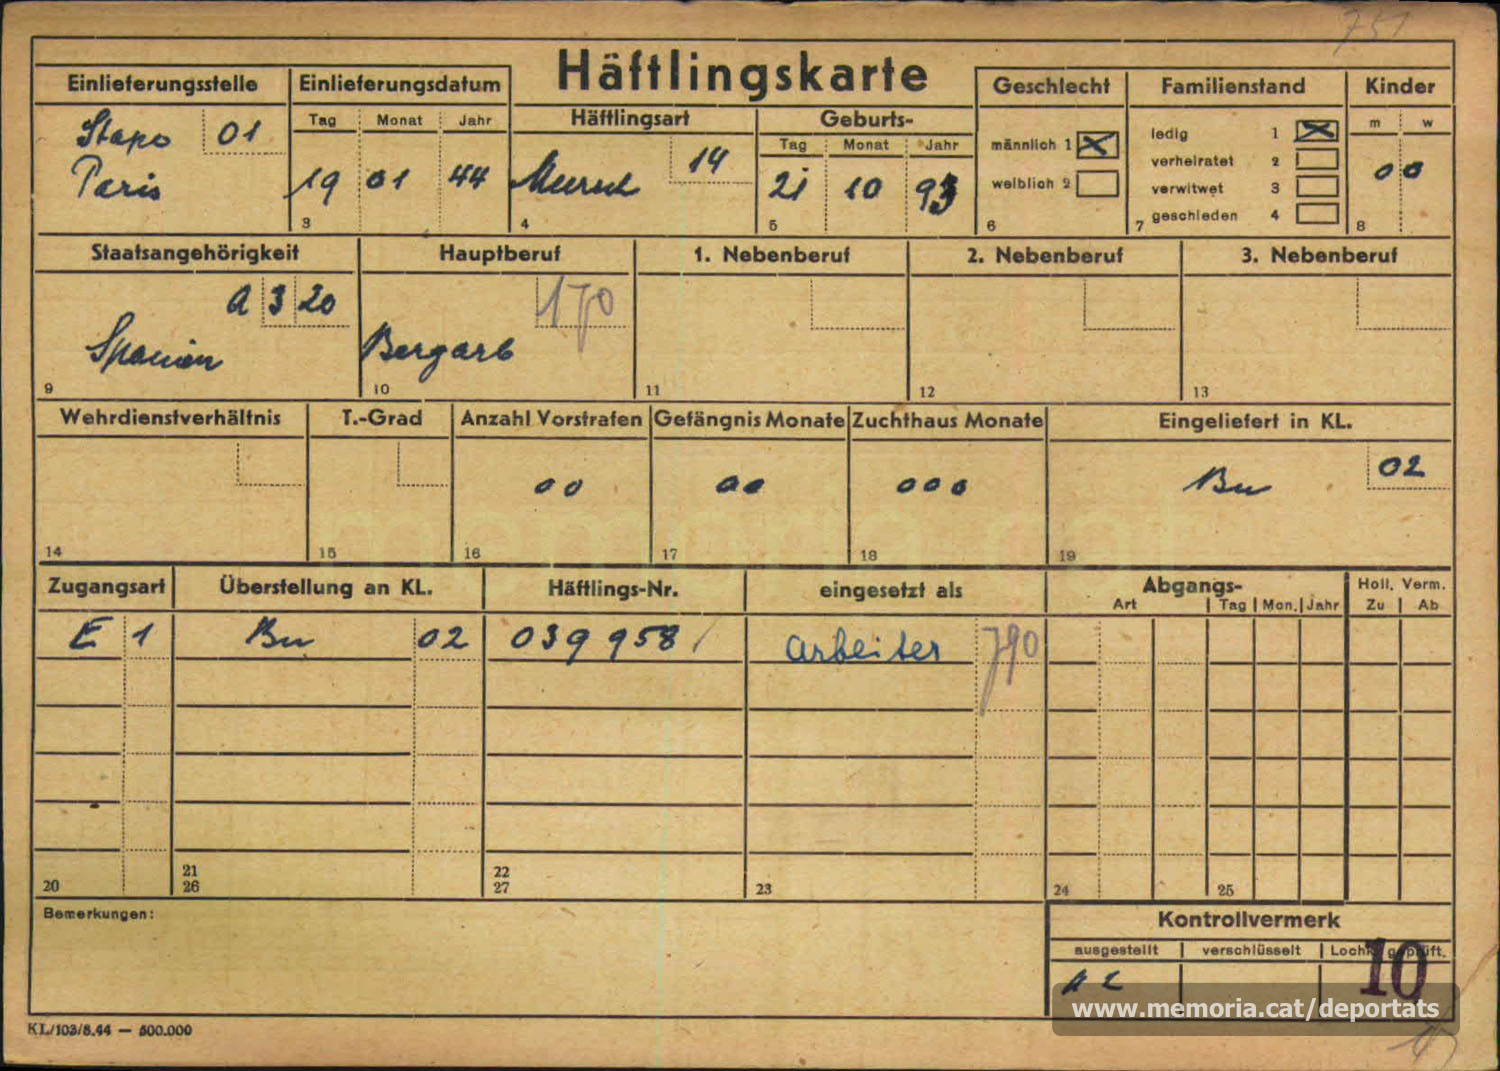 751
Häftlingskarte
Einlieferungsstelle
Stapo 01
Paris
Einlieferungsdatum
Tag Monat Jahr
19 01 44
3
Häftlingsart
14
4
Geburts-
Tag Monat Jahr
21 10 93
5
Geschlecht
männlich 1
weiblich 2
6
Familienstand
ledig 1
verheiratet 2
verwitwet 3
geschieden 4
7
Kinder
m w
0 0
8
Staatsangehörigkeit
a 3 20
Spanien
9
Hauptberuf
170
Bergarb
10
1. Nebenberuf
11
2. Nebenberuf
12
3. Nebenberuf
13
Wehrdienstverhältnis
14
T.-Grad
15
Anzahl Vorstrafen
00
16
Gefängnis Monate
00
17
Zuchthaus Monate
000
18
Eingeliefert in KL.
Bu 02
19
Zugangsart
E 1
20
Überstellung an KL.
Bu 02
21
26
Häftlings-Nr.
039958
22
27
eingesetzt als
arbeiter 790
23
Abgangs-
Art Tag Mon. Jahr
24 25
Holl. Verm.
Zu Ab
Bemerkungen:
Kontrollvermerk
ausgestellt verschlüsselt Lochk. geprüft.
10
www.memoria.cat/deportats
KL/103/8.44 — 500.000